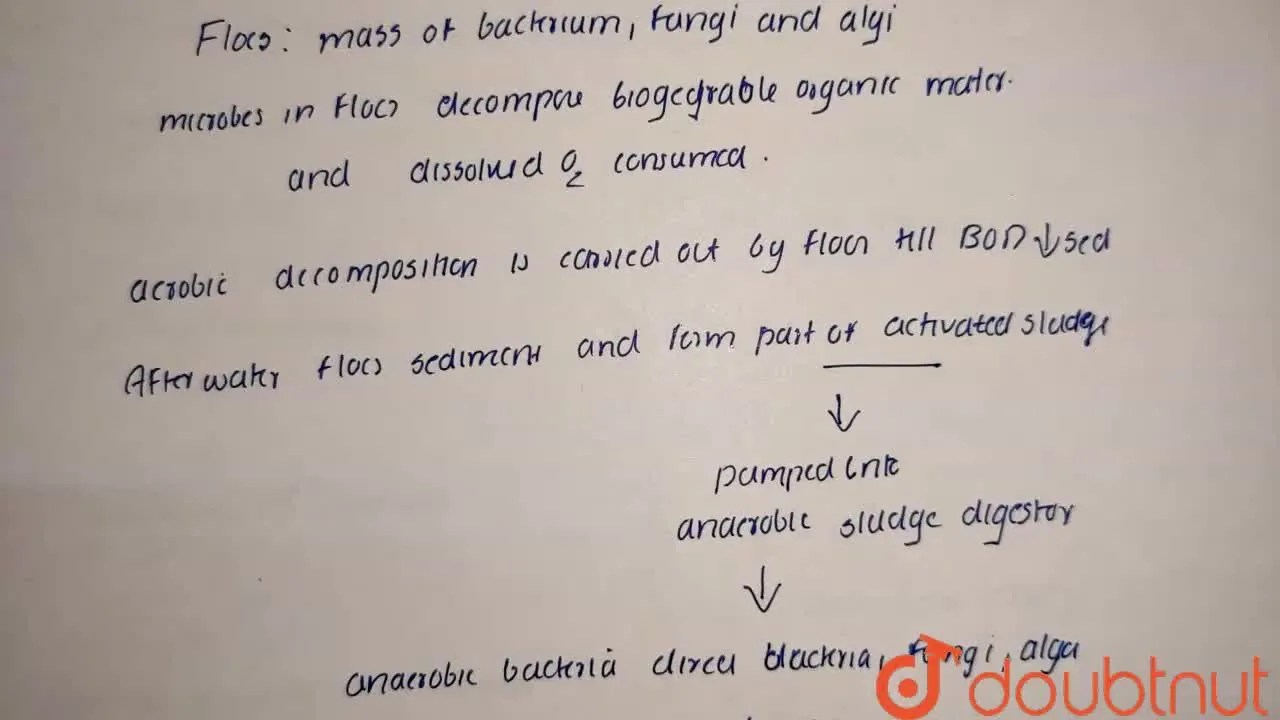 Flocs: mass of bacterium, fungi and algi
microbes in Flocs decompose biogegrable organic mater.
and dissolved O2 consumed.
aerobic decomposition is carried out by flocs till BOD ↓sed
After water flocs sediment and form part of activated sludge
↓
pumped into
anaerobic sludge digestor
↓
anaerobic bacteria bacteria, fungi, alga
doubtnut